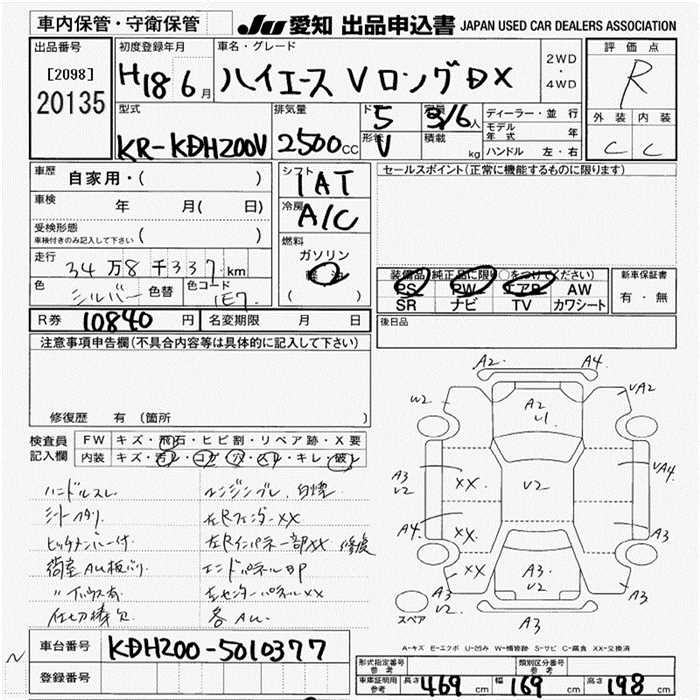 車内保管・守衛保管
JU 愛知 出品申込書 JAPAN USED CAR DEALERS ASSOCIATION
出品番号
[2098]
20135
初度登録年月
H18 6月
車名・グレード
ハイエース Vロング DX
2WD
・
4WD
評価点
R
外装 内装
C C
型式
KR-KDH200V
排気量
2500cc
ド
5
形状
V
定員
3/6人
積載
kg
ディーラー・並行
モデル年式 年
ハンドル 左・右
車歴
自家用・( )
車検
年 月( 日)
受検形態
車検付きのみ記入して下さい ( )
走行
34万8千337km
色
シルバー 色替
色コード
1E7
シフト
1AT
冷房
A/C
燃料
ガソリン
軽油
( )
セールスポイント(正常に機能するものに限ります)
装備品(純正品に限り○をつけてください)
PS PW エアB AW
SR ナビ TV カワシート
新車保証書
有・無
R券 10840円
名変期限 月 日
後日品
注意事項申告欄(不具合内容等は具体的に記入して下さい)
修復歴 有 (箇所 )
検査員
記入欄
FW キズ・飛石・ヒビ割・リペア跡・X要
内装 キズ・汚れ・コゲ・穴・スレ・キレ・破れ
ハンドルスレ
エンジンブレ, 白煙
シートヘタリ
左RフェンダーXX
ヒッチメンバー付
左Rインパネ一部XX 修復
荷室AU板バリ
エンドパネルBP
〃 ドウス有
左センターパネルXX
仕切棒欠
各AU
A2 A4
W2 A2 U1 UA2
A3 U2 XX U2 UA4
A4 XX A3
XX A3 U2 A3
A3 U2
A3
スペア
A-キズ E-エクボ U-凹み W-補修跡 S-サビ C-腐食 XX-交換済
車台番号 KDH200-5010377
登録番号
形式指定番号
参考
類別区分番号
参考
車庫証明用
参考
長さ 469cm 幅 169cm 高さ 198cm